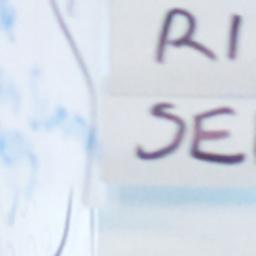 RI
SE